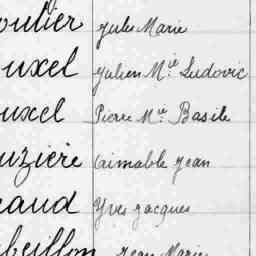 oulier Jules Marie
uxel Julien M.ie Ludovic
ouxel Pierre M.ie Basile
uzière Aimable Jean
eaud Yves Jacques
beillon Jean Marie